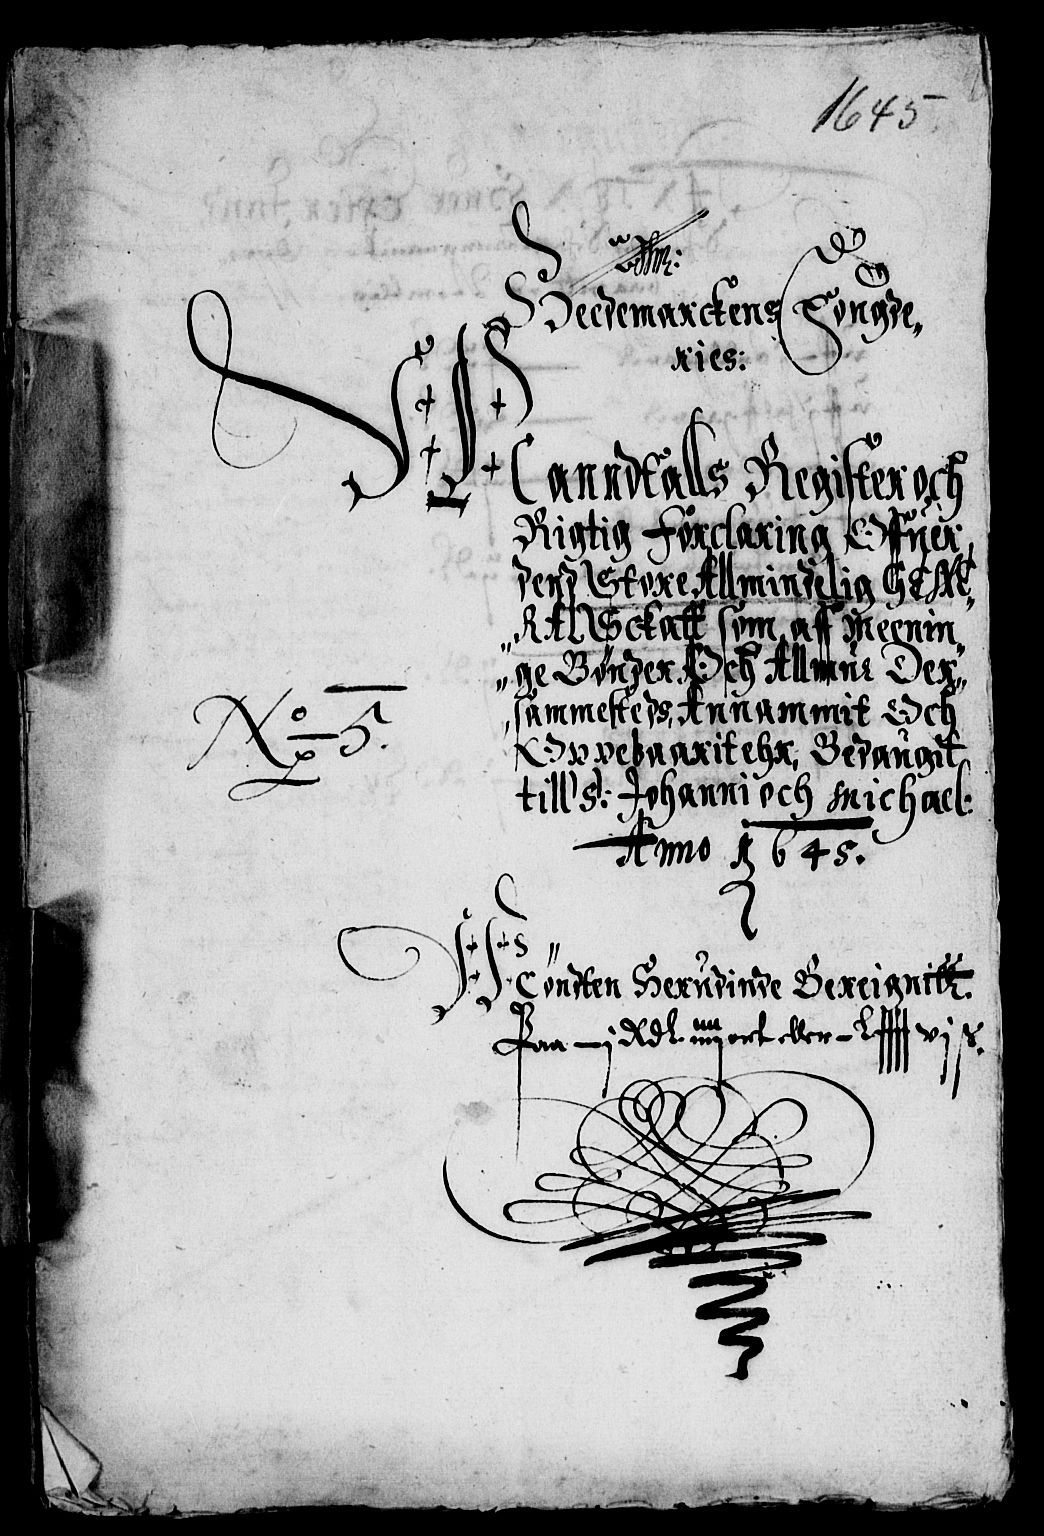 1645
Hedemarckens Fougde„
ries:
Manndtalls Register och
Rigtig Forclaring Offuer
dend Store Allmindelig GENE„
„RAL Sckatt som aff Meenin
„ge Bønder Och Allmue Der„
„sammesteds, Annammit Och
Oppebaarit ehr, Bedaugit
till S: Johanni och Michael:
Anno 1645.
No 5.
Fondten Herudinde Bereignitt.
Paa — j Rdl iiij ort eller – vj ß.